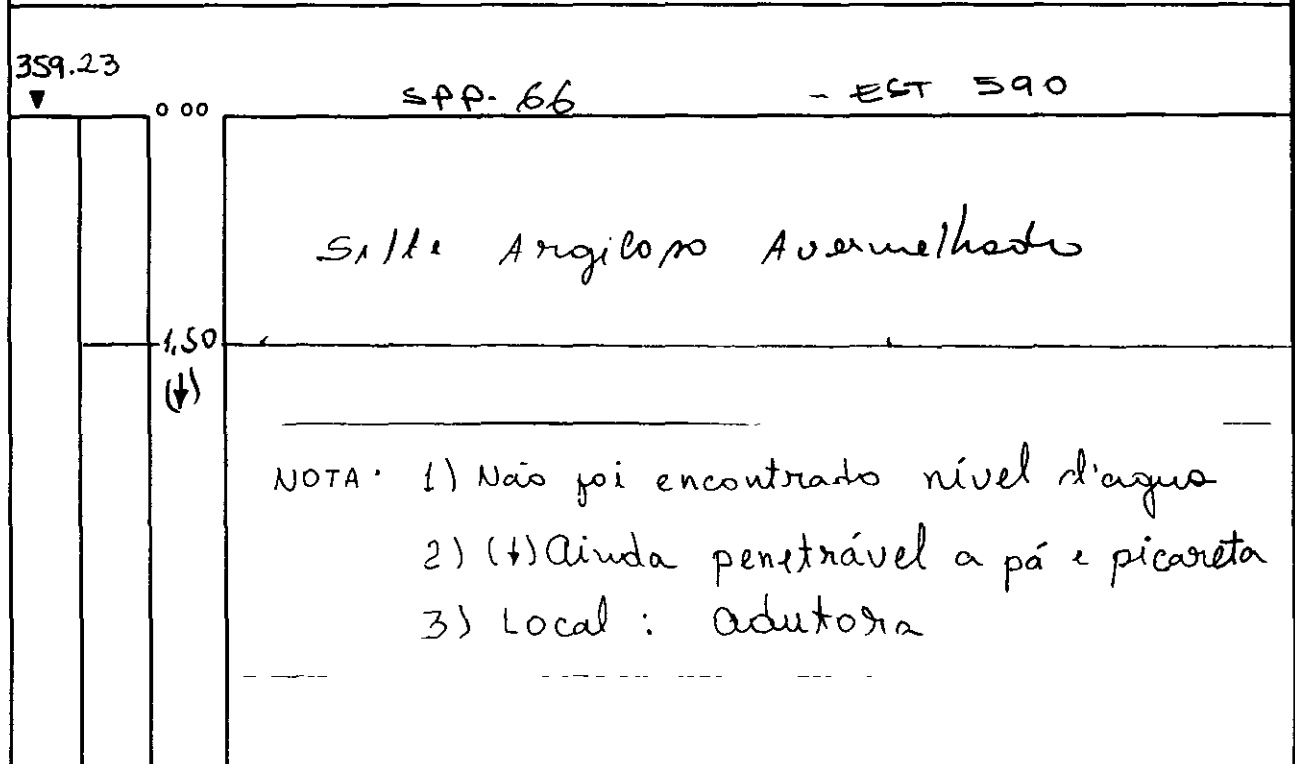 359.23
SPP-66 - EST 590
0 00
Silte Argiloso Avermelhado
1,50
(↓)
NOTA: 1) Não foi encontrado nível d'agua
2) (↓) Ainda penetrável a pá e picareta
3) Local: adutora